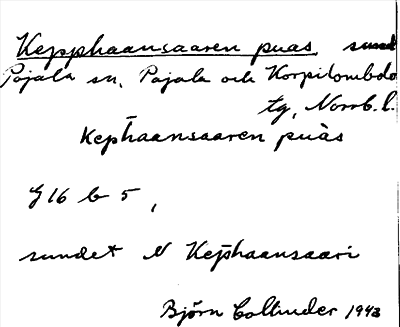 Kepphaansaaren puas sund
Pajala sn, Pajala och Korpilombolo
tg, Norrb. l.
Kep̄haansaaren puàs
G16 b 5,
sundet N Kep̄haansaari
Björn Collinder 1943